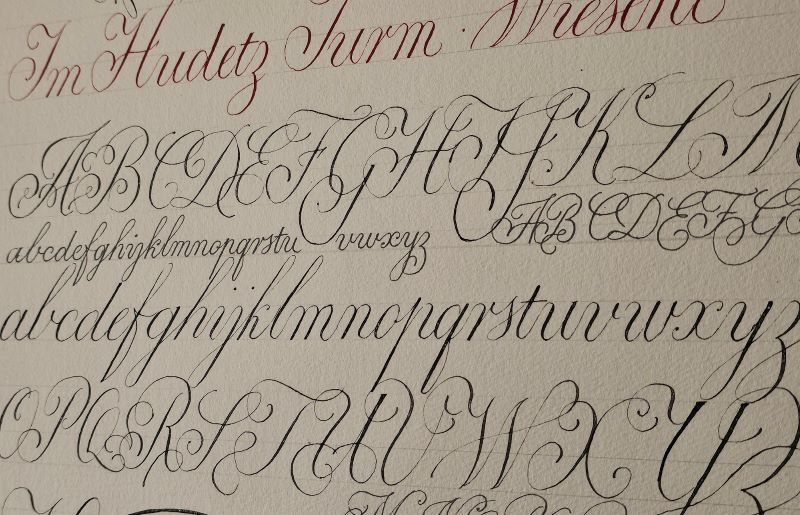 Im Hudetz Turm · Wiesent
ABCDEFGHIJKLM
abcdefghijklmnopqrstu vwxyz ABCDEFG
abcdefghijklmnopqrstuvwxyz
OPQRSTUVWXYZ